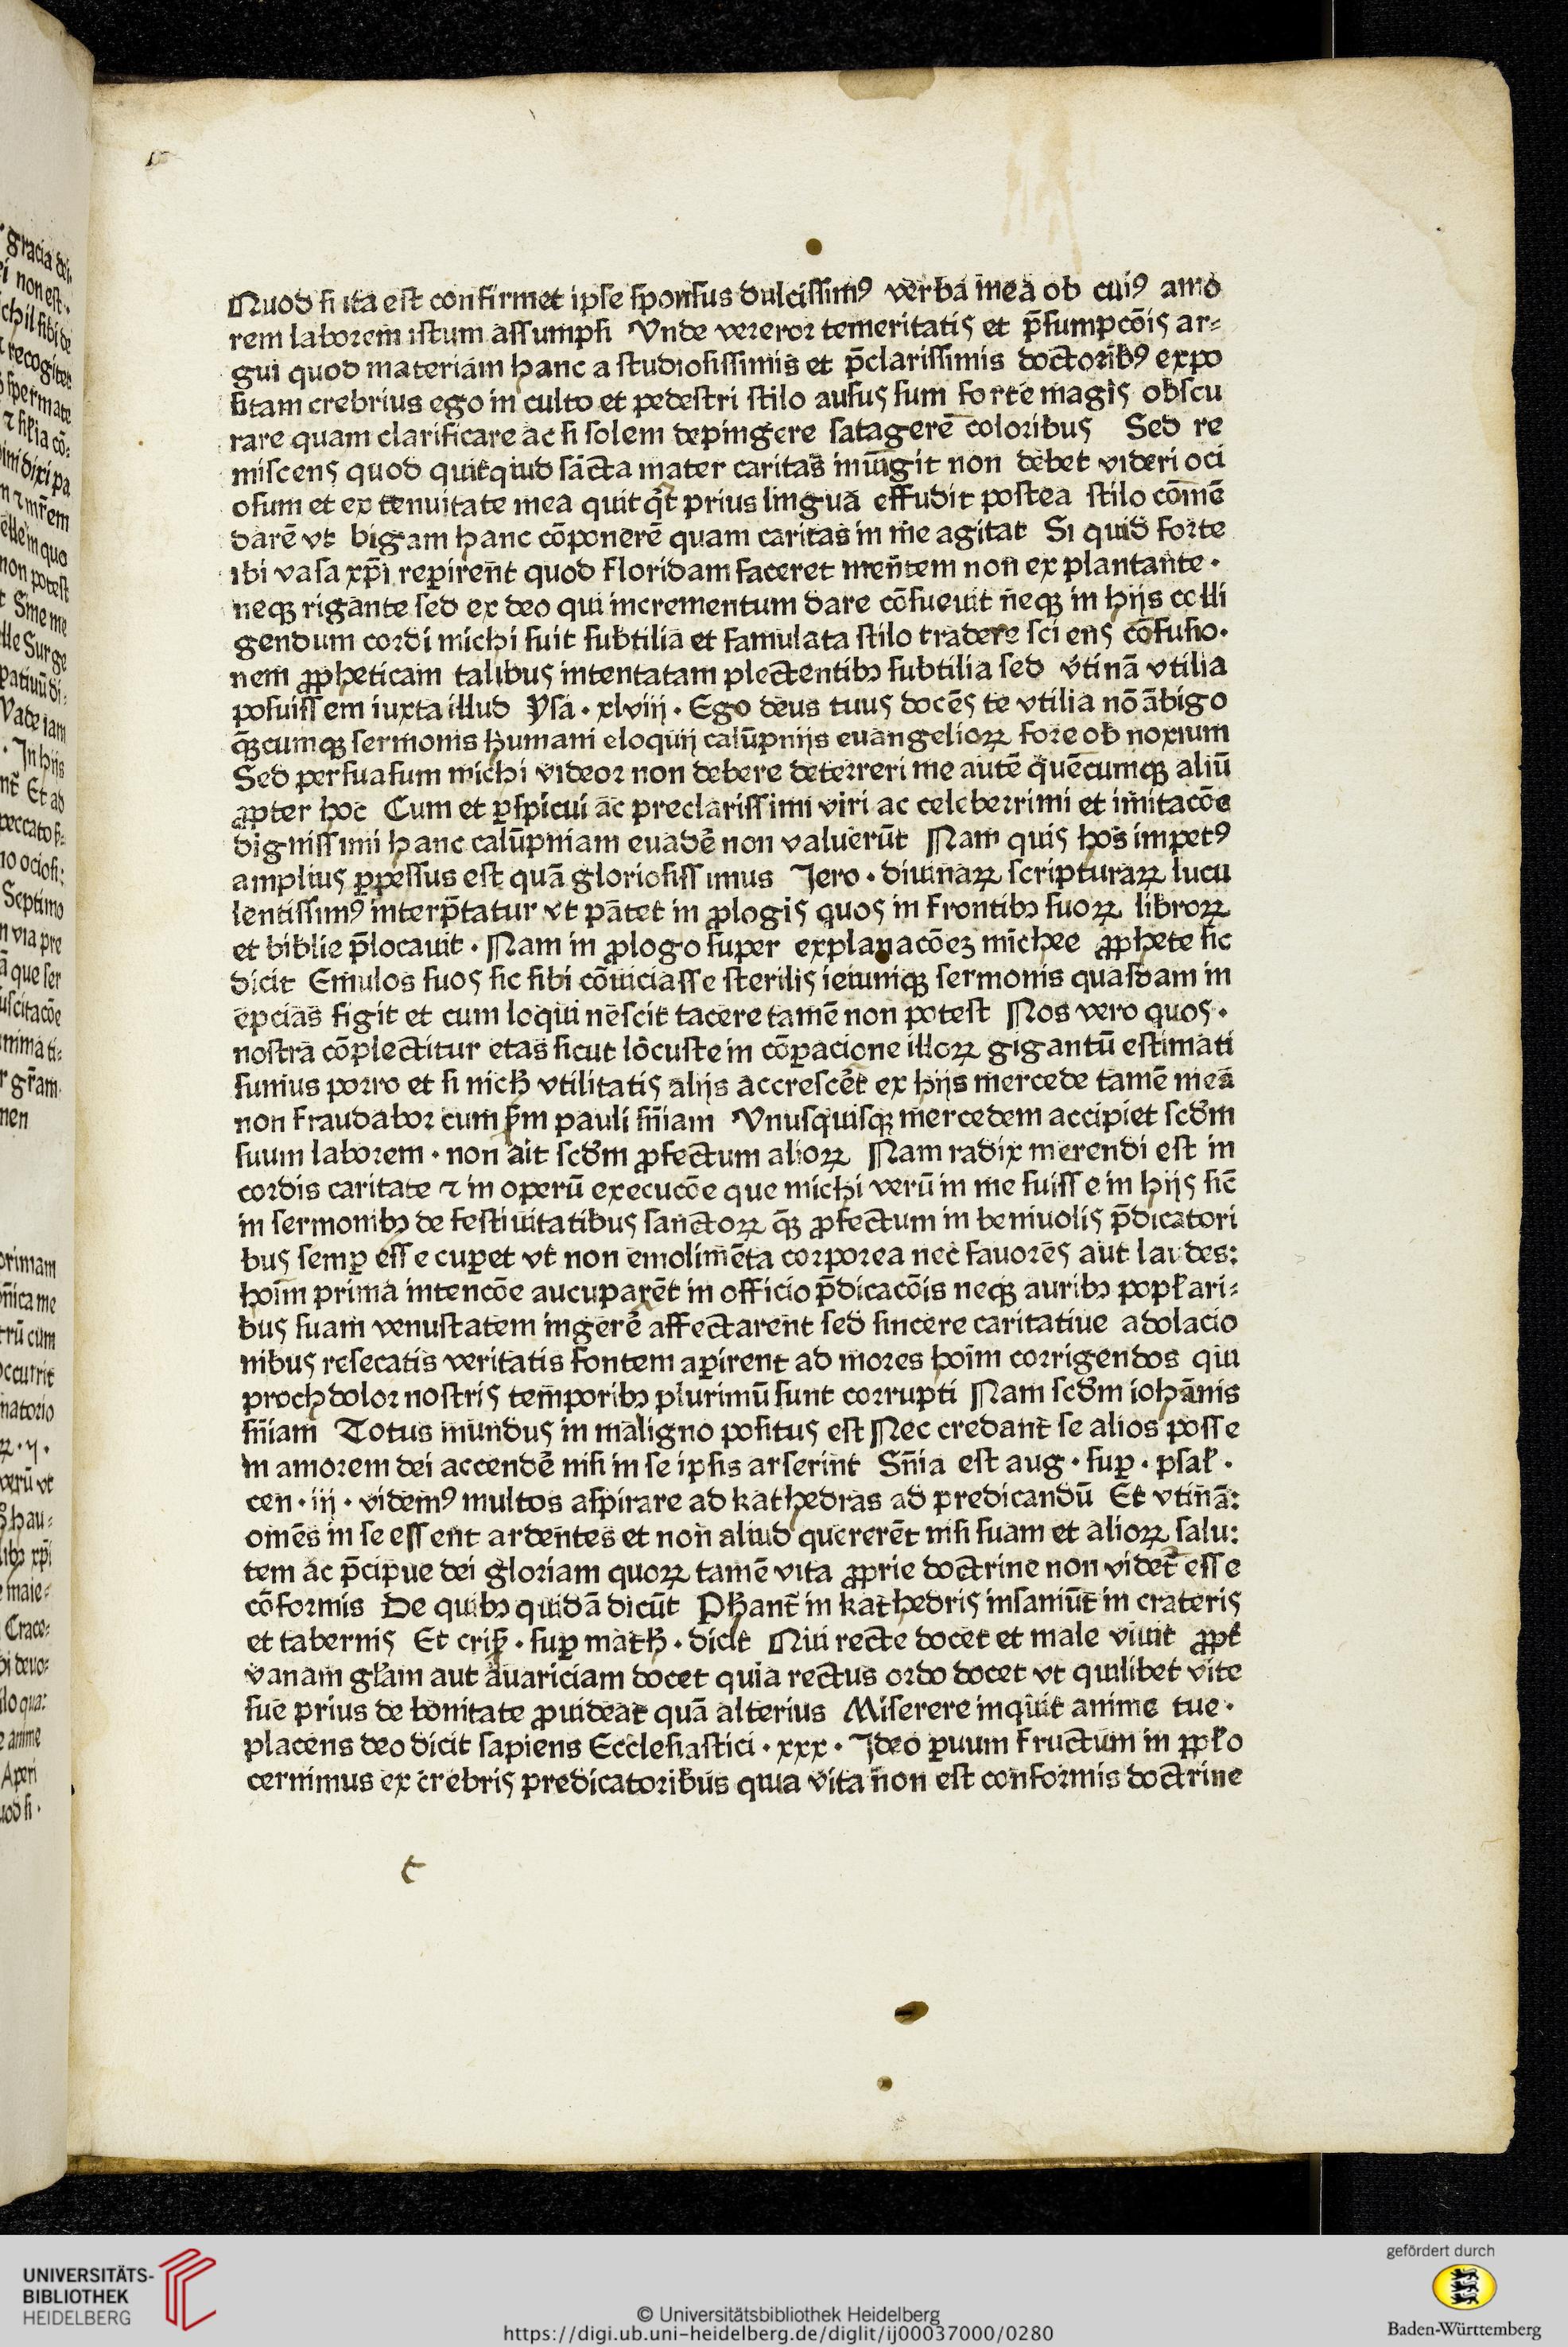 Quod si ita est confirmet ipse sponsus dulcissimꝰ verba mea ob cuiꝰ amo
rem laborem istum assumpsi Vnde vereror temeritatis et p̄sumpcōis ar=
gui quod materiam hanc a studiosissimis et p̄clarissimis doctoribꝰ expo
sitam crebrius ego in culto et pedestri stilo ausus sum forte magis obscu
rare quam clarificare ac si solem depingere satagerē coloribus Sed re
miscens quod quitquid sācta mater caritas iniūgit non debet videri oci
osum et ex tenuitate mea quit qͥt prius lingua effudit postea stilo cōmē
darē vt bigam hanc cōponerē quam caritas in me agitat Si quid forte
ibi vasa xp̄i reꝑirent quod floridam faceret mentem non ex plantante ·
neqꝫ rigante sed ex deo qui incrementum dare cōsueuit neqꝫ in hijs colli
gendum cordi michi fuit subtilia et famulata stilo tradere sci ens cōfusio·
nem ꝓpheticam talibus intentatam plectentibꝫ subtilia sed vtinā vtilia
posuissem iuxta illud Ysa · xlviij · Ego deus tuus docēs te vtilia nō ābigo
q̄ꝫcumqꝫ sermonis humani eloquij calūpnijs euangelioꝝ fore ob noxium
Sed persuasum michi videor non debere deterreri me autē quēcumqꝫ aliū
ꝓpter hoc Cum et ꝑspicui ac preclarissimi viri ac celeberrimi et imitacōe
dignissimi hanc calūpniam euadē non valuerūt Nam quis hos impetꝰ
amplius ꝑpessus est quā gloriosissimus Jero · diuinaꝝ scripturaꝝ lucu
lentissimꝰ interp̄tatur vt patet in ꝓlogis quos in frontibꝫ suoꝝ libroꝝ
et biblie p̄locauit · Nam in ꝓlogo super explanacōeꝫ michee ꝓphete sic
dicit Emulos suos sic sibi cōuiciasse sterilis ieiuniqꝫ sermonis quasdam in
epcias figit et cum loqui nescit tacere tamē non potest Nos vero quos ·
nostra cōplectitur etas sicut locuste in cōꝑacione illoꝝ gigantū estimati
sumus porro et si nich̄ vtilitatis alijs accrescēt ex hijs mercede tamē mea
non fraudabor cum ẜm pauli sn̄iam Vnusquisqꝫ mercedem accipiet scd̄m
suum laborem · non ait scd̄m ꝓfectum alioꝝ Nam radix merendi est in
cordis caritate ⁊ in operū execucōe que michi verū in me fuisse in hijs sic̄
in sermonibꝫ de festiuitatibus sanctoꝝ q̄ꝫ ꝓfectum in beniuolis p̄dicatori
bus semꝑ esse cuꝑet vt non emolimēta corporea nec fauores aut laudes:
hoīm prima intencōe aucuparēt in officio p̄dicacōis neqꝫ auribꝫ popl̄ari=
bus suam venustatem ingerē affectarent sed sincere caritatiue adolacio
nibus resecatis veritatis fontem aꝑirent ad mores hoīm corrigendos qui
proch dolor nostris temporibꝫ plurimū sunt corrupti Nam scd̄m iohānis
sn̄iam Totus mundus in maligno positus est Nec credant se alios posse
in amorem dei accendē nisi in se ipsis arserint Sn̄ia est aug · suꝑ · psal̄ ·
cen · iij · videmꝰ multos aspirare ad kathedras ad predicandū Et vtinā:
omēs in se essent ardentes et non aliud quererēt nisi suam et alioꝝ salu:
tem ac p̄cipue dei gloriam quoꝝ tamē vita ꝓprie doctrine non videt᷑ esse
cōformis De quibꝫ quidā dicūt Ph̄ant᷑ in kathedris insaniūt in crateris
et tabernis Et cris̄ · suꝑ math̄ · dicit Qui recte docet et male viuit ꝓpt̄
vanam gl̄am aut auariciam docet quia rectus ordo docet vt quilibet vite
sue prius de bonitate ꝓuideat quā alterius Miserere inquit anime tue ·
placens deo dicit sapiens Ecclesiastici · xxx · Jdeo ꝑuum fructum in ppl̄o
cernimus ex crebris predicatoribus quia vita non est conformis doctrine
t
UNIVERSITÄTS-
BIBLIOTHEK
HEIDELBERG
© Universitätsbibliothek Heidelberg
https://digi.ub.uni-heidelberg.de/diglit/ij00037000/0280
gefördert durch
Baden-Württemberg